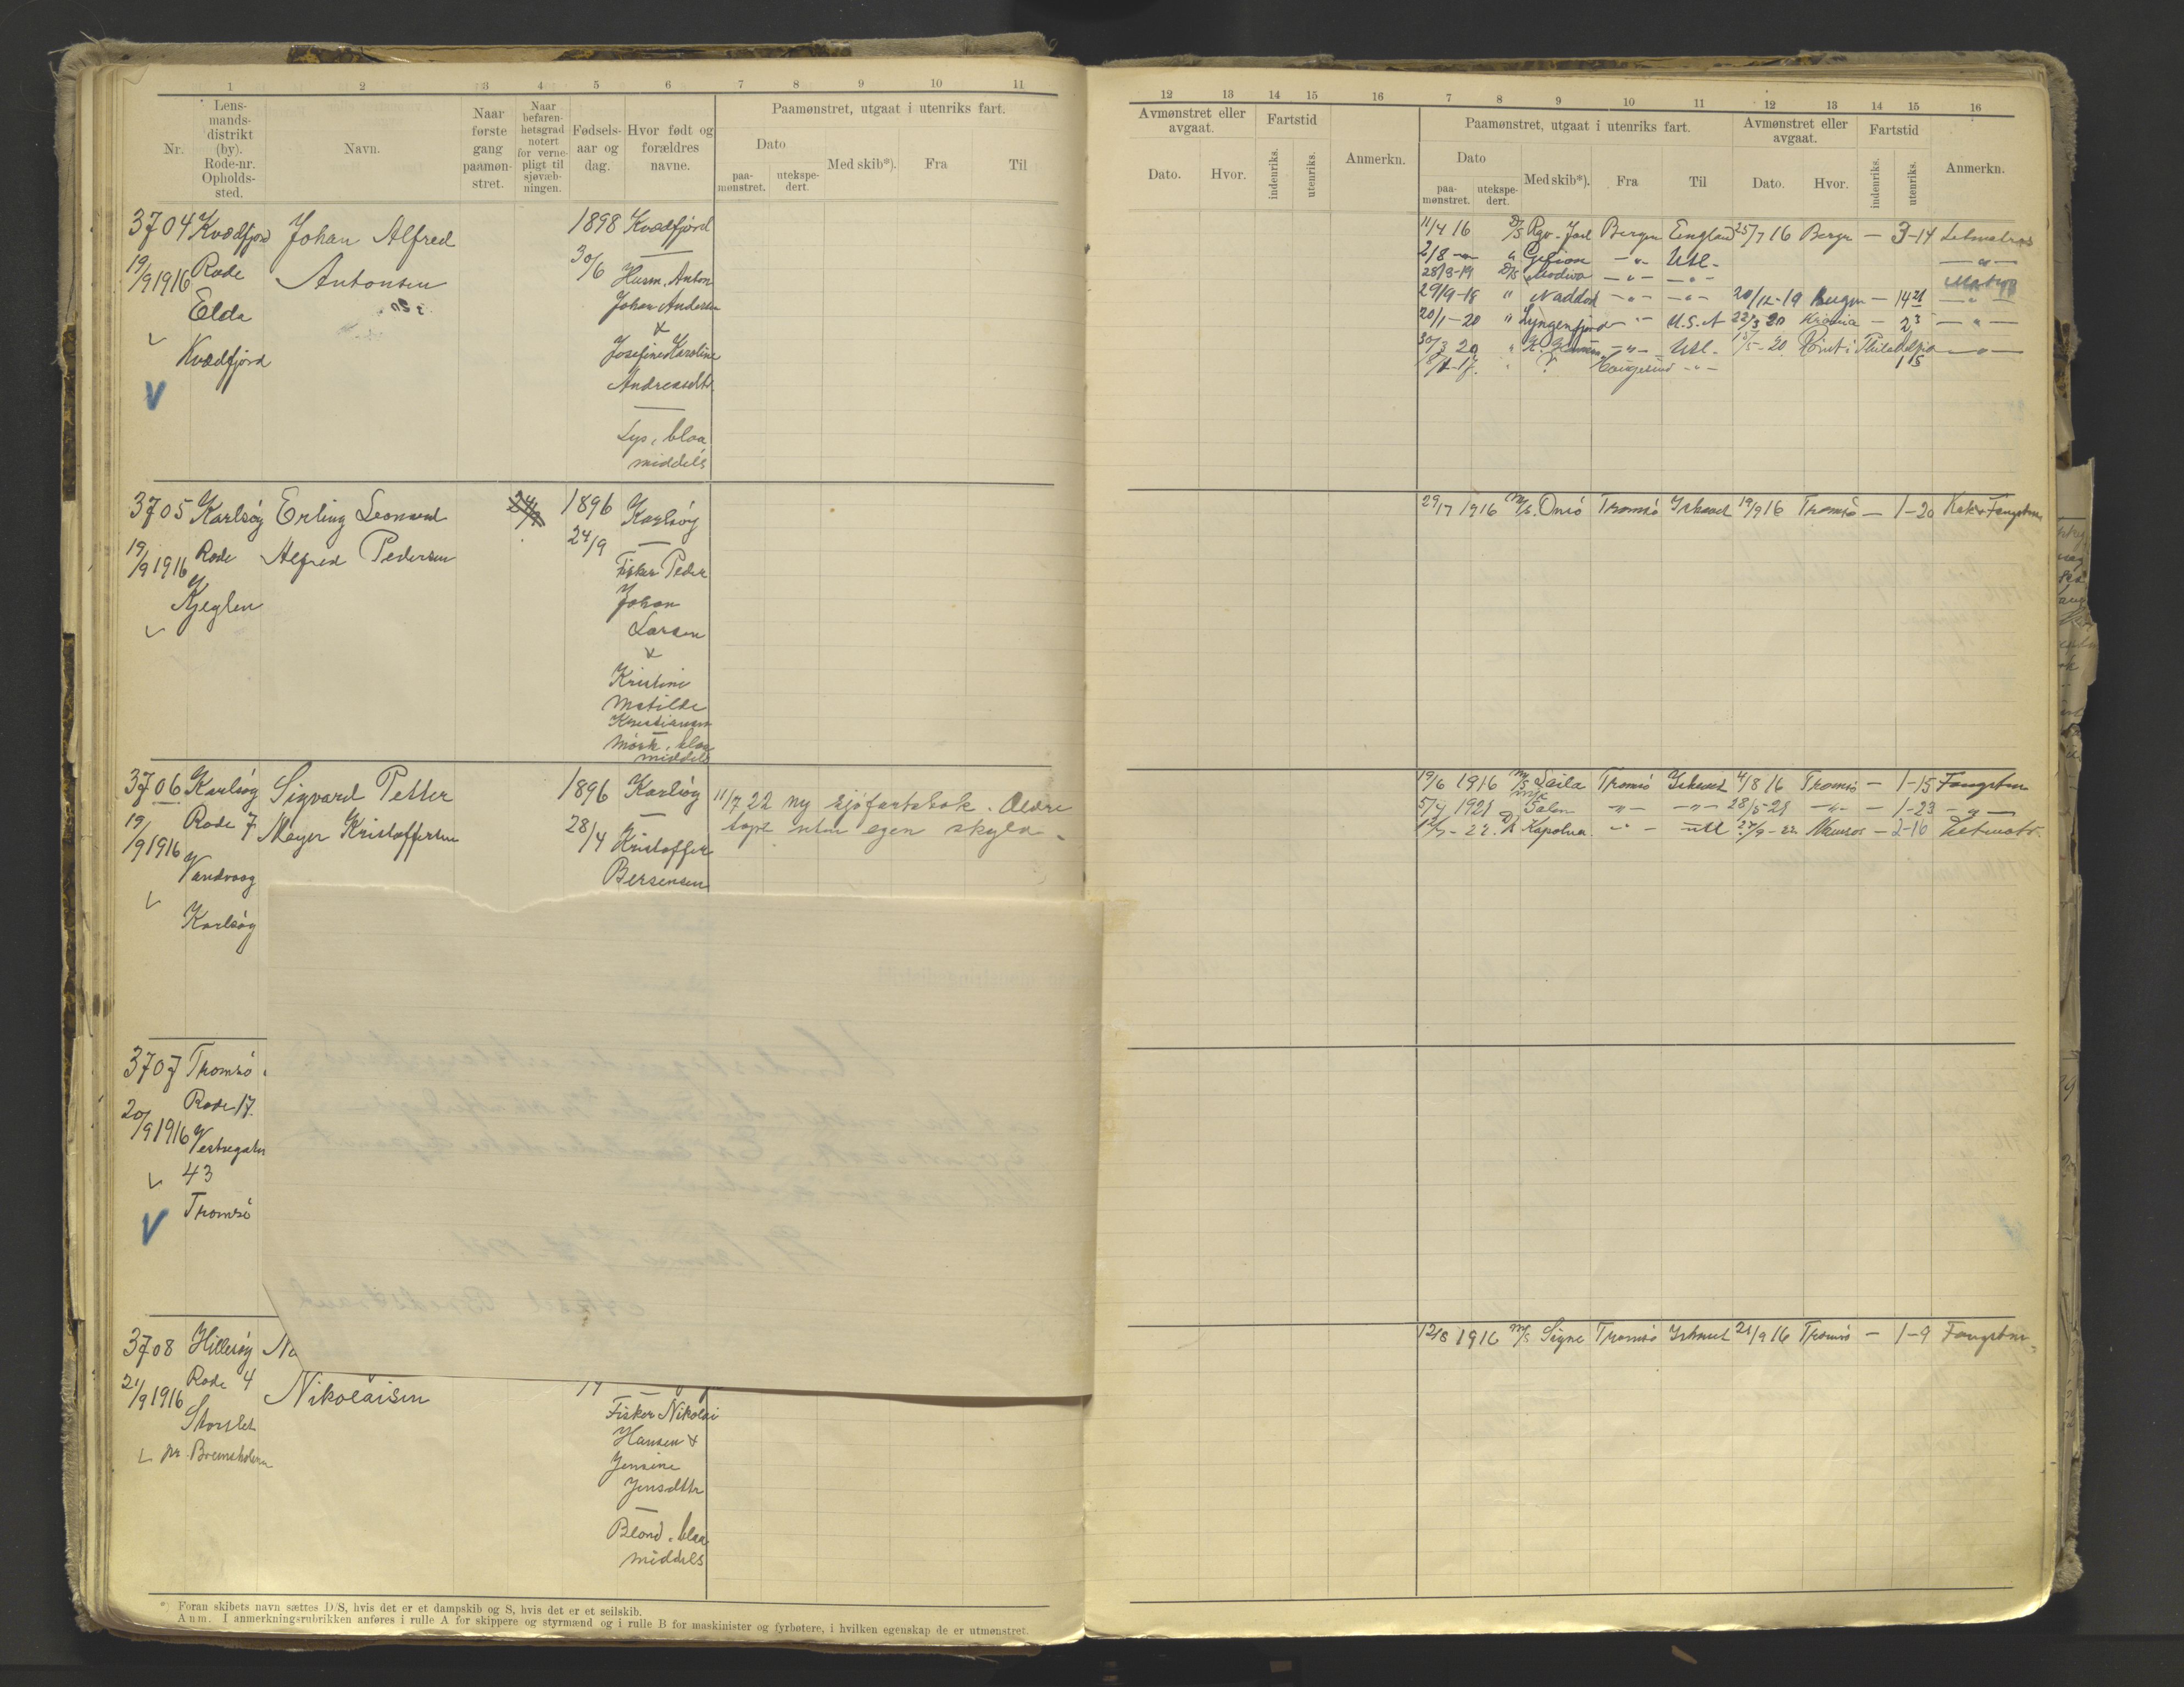 1 2 3 4 5 6 7 8 9 10 11
Nr.
Lens-
mands-
distrikt
(by).
Rode-nr.
Opholds-
sted.
Navn.
Naar
første
gang
paamøn-
stret.
Naar
befaren-
hetsgrad
notert
for verne-
pligt til
sjøvæb-
ningen.
Fødsels-
aar og
dag.
Hvor født og
forældres
navne.
Paamønstret, utgaat i utenriks fart.
Dato
paa-
mønstret.
utekspe-
dert.
Med skib*).
Fra
Til
3704 Kvædfjord Johan Alfred 1898 Kvædfjord
19/9 1916 Rode Antonsen 30/6
Elda
Kvædfjord
Husm. Anton
Johan Andersen
&
Josefine Karoline
Andreasdtr
Lys, blaa
middels
3705 Karlsøy Erling Leonard 24/9 1896 Karlsøy
19/9 1916 Rode Alfred Pedersen 24/9
Kjeglen
Fisker Peder
Johan
Larsen
&
Kristine
Matilde
Kristiansen
Mörk, blaa
middels
3706 Karlsøy Sigvard Petter 1896 Karlsøy 11/7 22 ny sjøfartsbok. Ældre
19/9 1916 Rode 7 Meyer Kristoffersen 28/4 Kristoffer tapt uten egen skyld.
Vandvaag Bersensen
Karlsøy
3707 Tromsö
20/9 1916 Rode 17
Vestregaten
43
Tromsö
3708 Hillesøy
21/9 1916 Rode 4 Nikolaisen
Storslet
pr. Bremsholmen
Fisker Nikolai
Hansen &
Jensine
Jensdtr
Blond, blaa
middels
*) Foran skibets navn sættes D/S, hvis det er et dampskib og S, hvis det er et seilskib.
Anm. I anmerkningsrubrikken anføres i rulle A for skippere og styrmænd og i rulle B for maskinister og fyrbøtere, i hvilken egenskap de er utmønstret.
12 13 14 15 16 7 8 9 10 11 12 13 14 15 16
Avmønstret eller
avgaat.
Dato.
Hvor.
Fartstid
indenriks.
utenriks.
Anmerkn.
Paamønstret, utgaat i utenriks fart.
Dato
paa-
mønstret.
utekspe-
dert.
Med skib*).
Fra
Til
Avmønstret eller
avgaat.
Dato.
Hvor.
Fartstid
indenriks.
utenriks.
Anmerkn.
11/4 16 D/S Rgv. Jarl Bergen England 25/7 16 Bergen — 3-14 Letmatros
2/8 — " Gefion — " — Utl. — " —
28/3-19 D/S Modiva — " — — " —
29/9-18 " Naddod — " — — " — 20/12-19 Bergen — 14 21 — " —
20/1-20 " Lyngenfjord — " — U.S.A 22/3 20 Kr.ania — 2 3 — " —
30/3 20 — " — Utl. 15/5-20 Rømt i Philadelphia — " —
29/7 1916 M/S. Onsö Tromsö Ishavet 19/9 16 Tromsö — 1-20 Kok & Fangstm
19/6 1916 M/S Laila Tromsö Ishavet 4/8 16 Tromsö — 1-15 Fangstm
5/4 1921 M/K Salen — " — — " — 28/5-21 — " — — 1-23 — " —
12/7-22. D/S Kapolna — " — Utl 27/9-22 Namsos — 2-16 Letmatr.
12/8 1916 M/S Signe Tromsö Ishavet 21/9 16 Tromsö — 1-9 Fangstm.